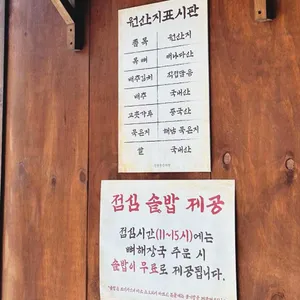 원산지표시판
품목 원산지
목뼈 캐나다산
배추김치 직접담음
배추 국내산
고춧가루 중국산
묵은지 해남 묵은지
쌀 국내산
점심 솥밥 제공
점심시간(11~15시)에는
뼈해장국 주문 시
솥밥이 무료로 제공됩니다.